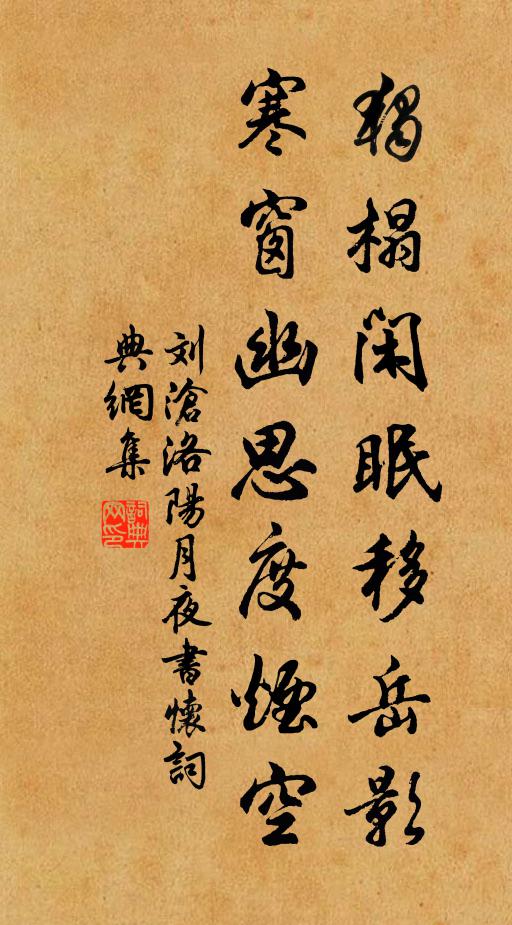 獨榻閑眠移岳影
寒窗幽思度煙空
刘滄洛陽月夜書懷詞
典網集
詞典網印